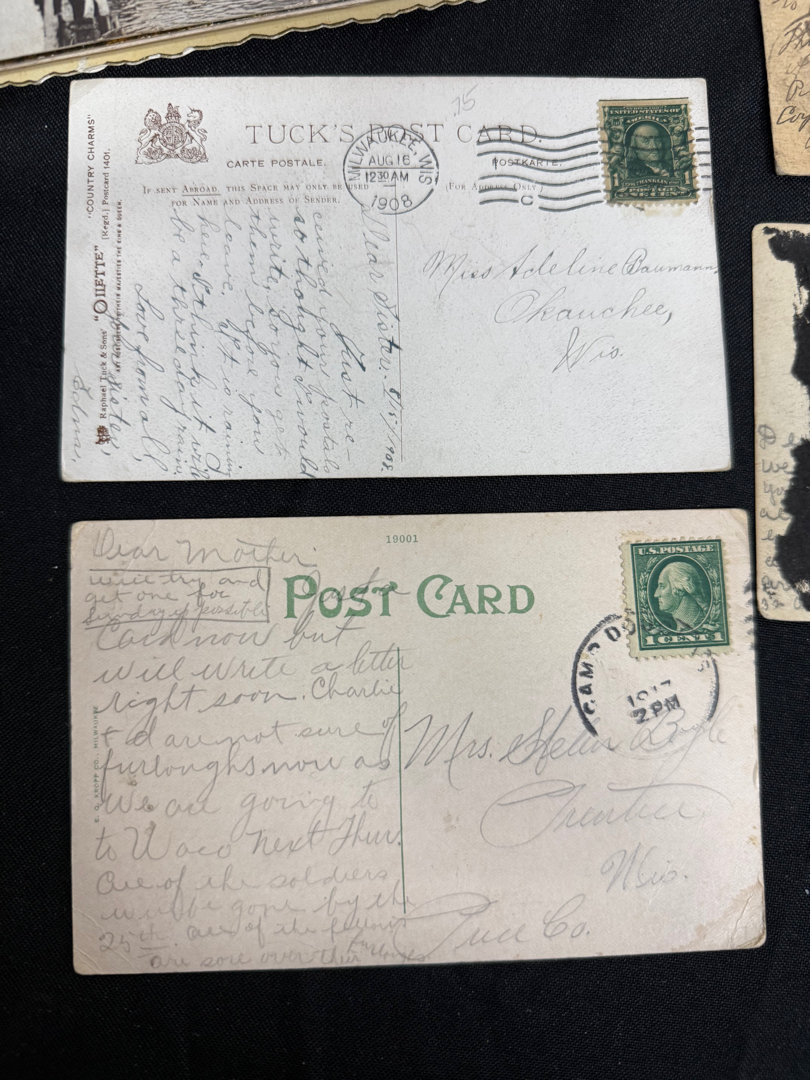 75
TUCK'S POST CARD.
CARTE POSTALE.
POSTKARTE.
IF SENT ABROAD, THIS SPACE MAY ONLY BE USED
FOR NAME AND ADDRESS OF SENDER.
(FOR ADDRESS ONLY)
MILWAUKEE, WIS
AUG 16
12 30 AM
1908
C
UNITED STATES OF
AMERICA
FRANKLIN
1
POSTAGE
1
"COUNTRY CHARMS"
Raphael Tuck & Sons' "OILETTE" [Regd.] Postcard 1401.
Miss Adeline Baumann,
Okauchee,
Wis.
Dear Sister. 8/15/'08.
Just re-
ceived your postals
so thought I would
write, so you get
them before you
leave. It is raining
here, I think it will
be a three day rain.
Love from all,
Sister,
19001
POST CARD
Dear Mother
Just a
will try and
get one for
Sunday if possible
Card now but
will write a letter
right soon. Charlie
+ I are not sure of
furloughs now as
we are going to
to Waco next Thur.
All of the soldiers
will be gone by the
25th. All of the
are sore over their
E. C. KROPP CO., MILWAUKEE
U.S. POSTAGE
1 CENT 1
CAMP DO
1917
2 PM
Mrs. Helen Boyle
Prentice
Wis.
Price Co.